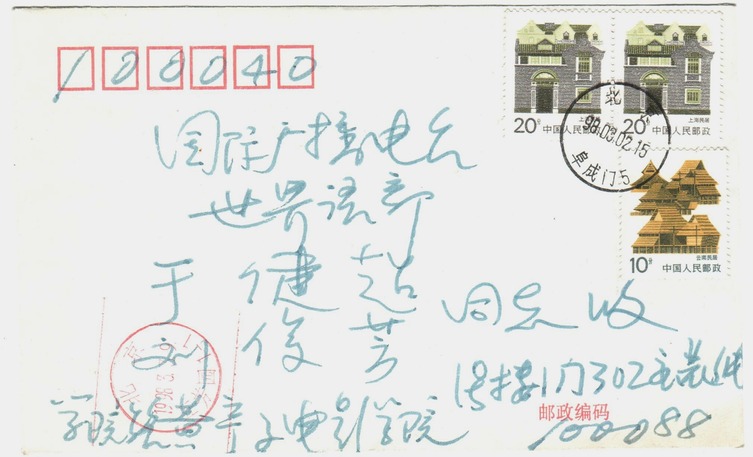 100040
国际广播电台
世界语部
于健超
刘俊芳
同志收
门302
学院路黄亭子电影学院
邮政编码
100088
20分
上海民居
中国人民邮政
20分
上海民居
中国人民邮政
10分
云南民居
中国人民邮政
北京
98.03.02.15
阜成门5
北京